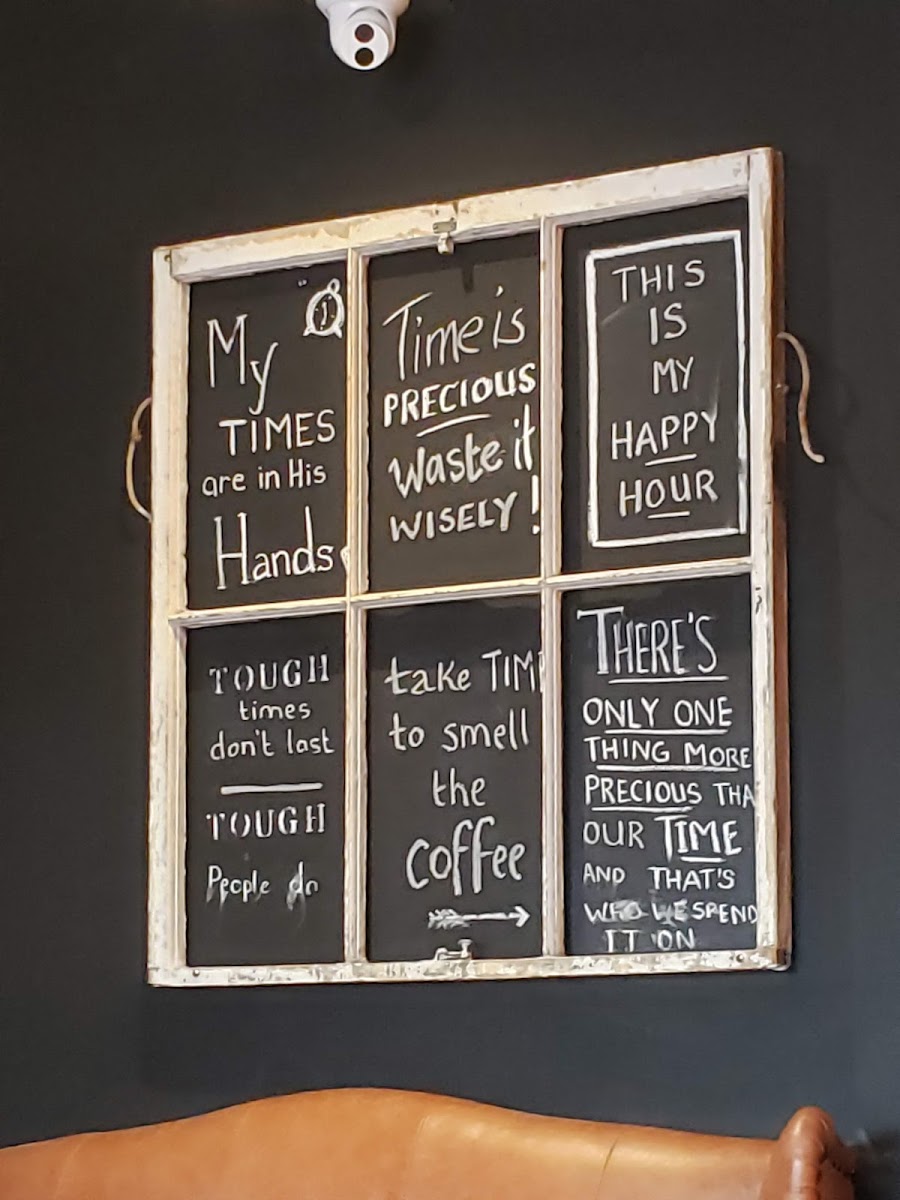 My
TIMES
are in His
Hands
Time is
PRECIOUS
Waste it
WISELY!
THIS
IS
MY
HAPPY
HOUR
TOUGH
times
don't last
TOUGH
People do
take TIM
to smell
the
coffee
THERE'S
ONLY ONE
THING MORE
PRECIOUS THA
OUR TIME
AND THAT'S
WHO WE SPEND
IT ON